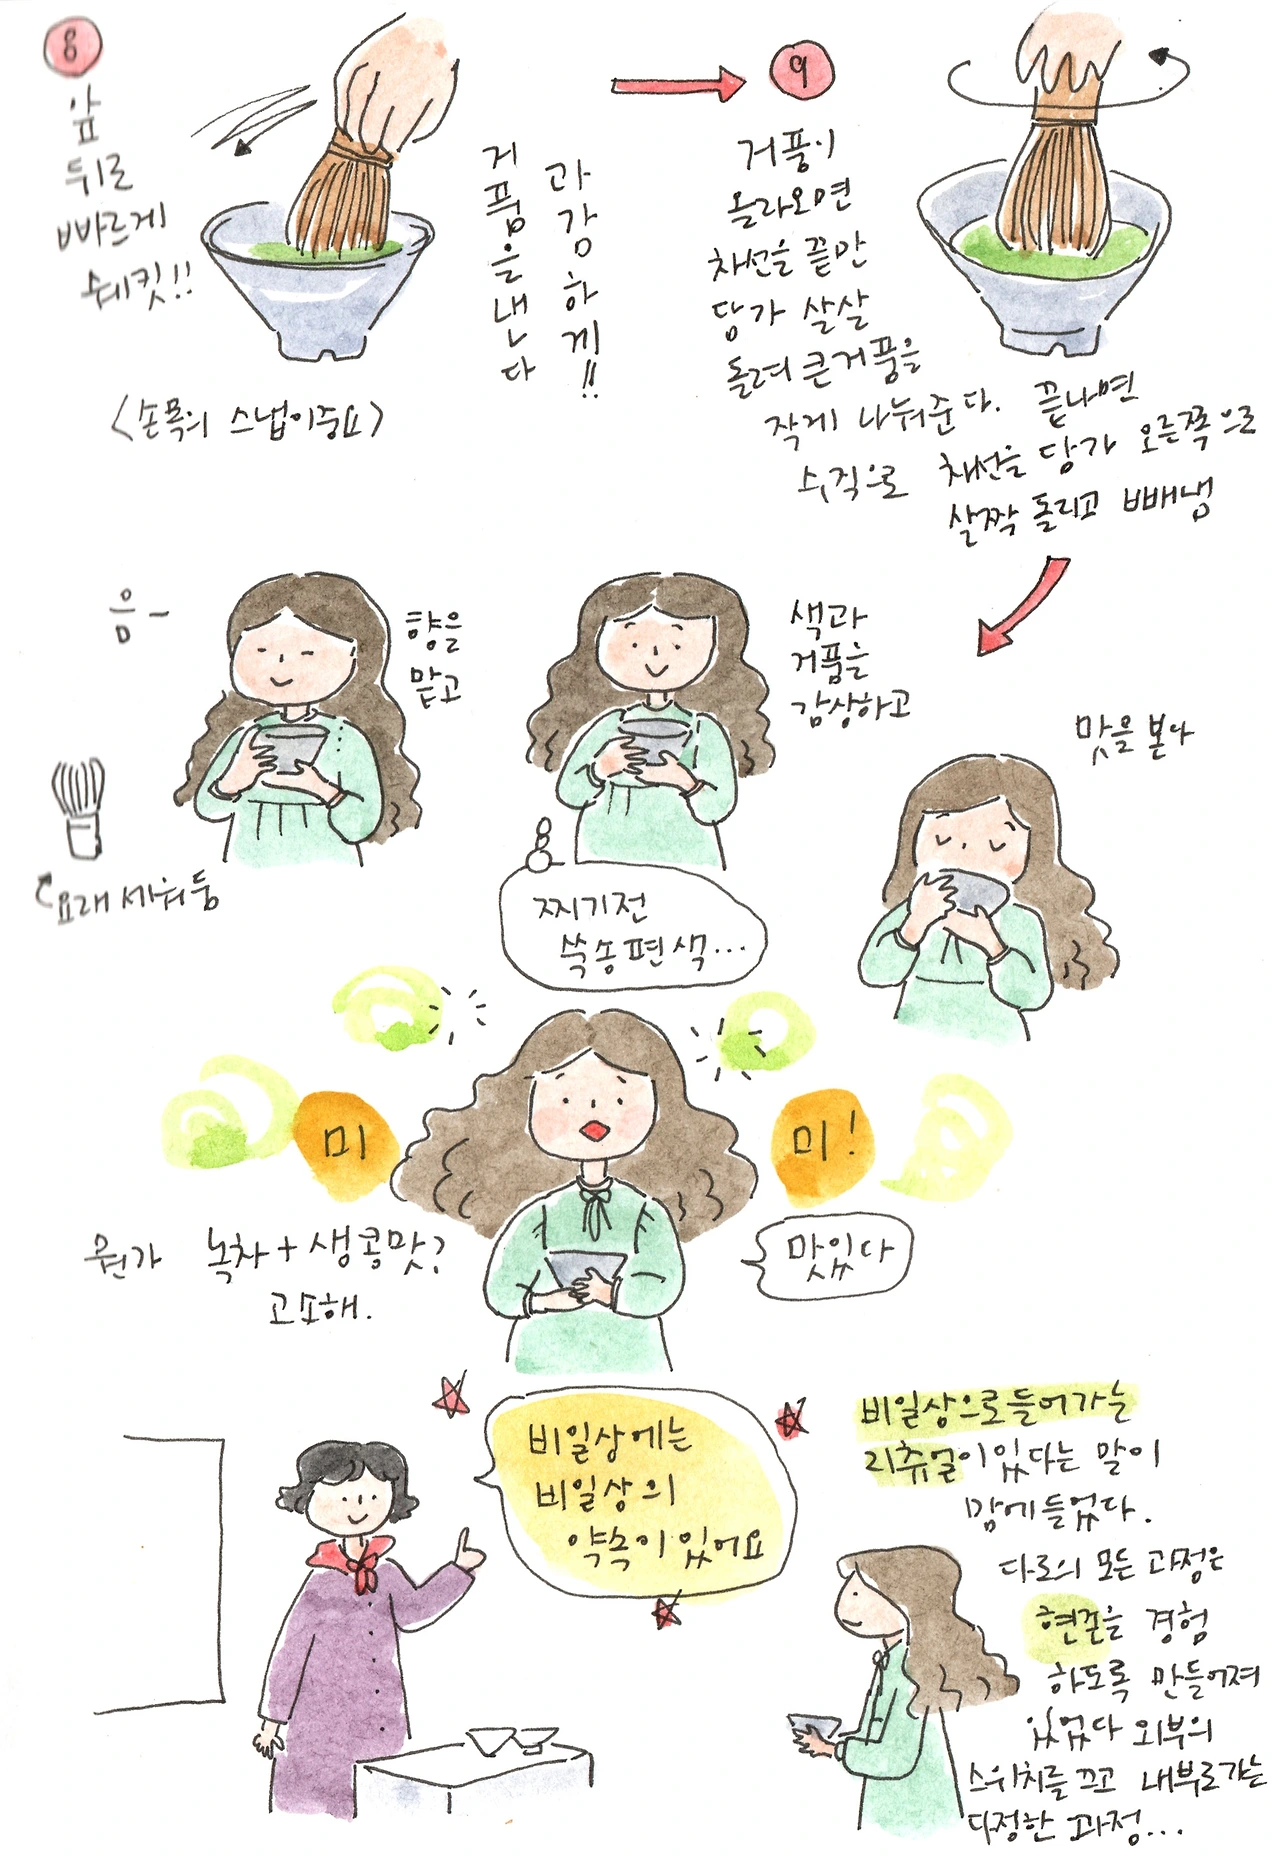 8
앞
뒤로
빠르게
쉐킷!!
과감하게!!
거품을낸다
<손목의 스냅이중요>
9
거품이
올라오면
차선을 끝만
담가 살살
돌려 큰거품을
작게 나눠준다. 끝나면
수직으로 차선을 담가 오른쪽으로
살짝 돌리고 빼냄
음~
향을
맡고
색과
거품을
감상하고
맛을 본다
요래 세워둠
찌기전
쑥송편색...
미
미!
뭔가 녹차+생콩맛?
고소해.
맛있다
비일상에는
비일상의
약속이있어요
비일상으로들어가는
리츄얼이있다는 말이
맘에들었다.
다로의 모든 과정은
현존을 경험
하도록 만들어져
있었다 외부의
스위치를 끄고 내부로가는
다정한 과정...